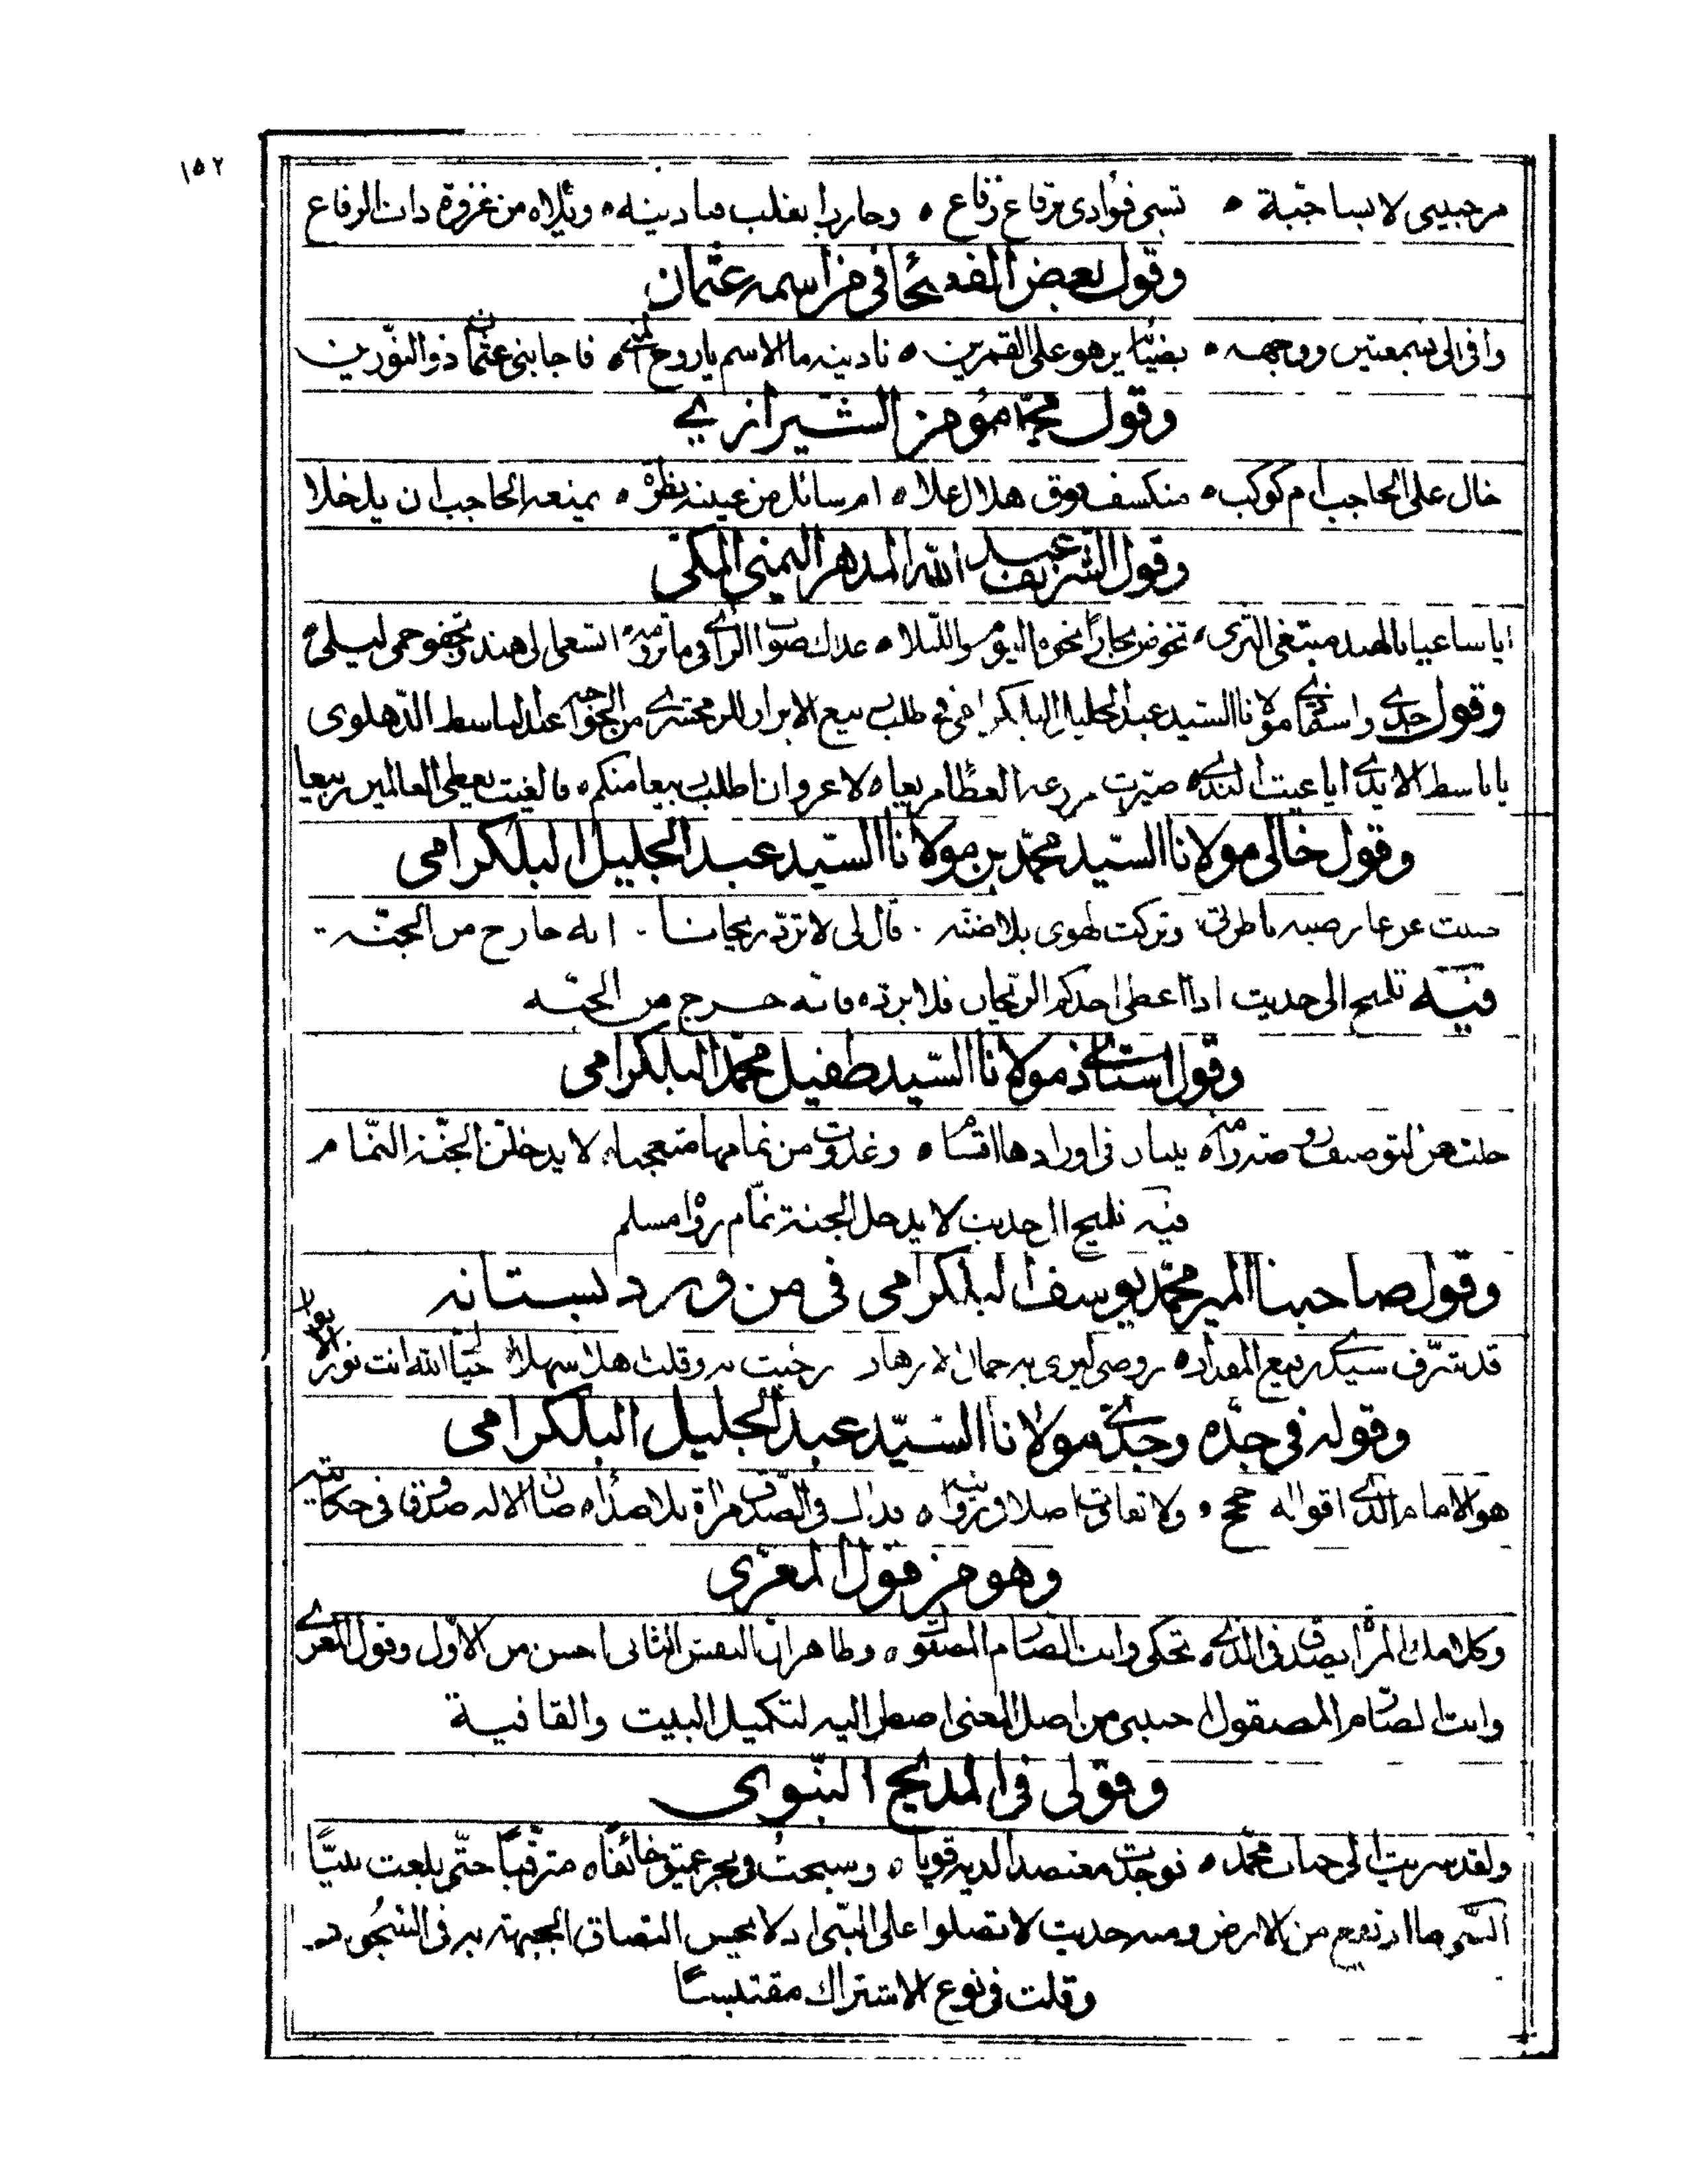 ١٥٢
مر حبيبي لابسا جبة ٥ تسبى فؤادى برقاع رقاع ٥ وحاربا بقلب ناديته ٥ ويلاه من غزوة ذات الرقاع
وقول بعض الفصحا فى من اسمه عثمان
وافى الى بشمعتين ووجهه ٥ بضيائه يزهو على القمرين ٥ ناديته ما الاسم يا روح المنى ٥ فاجابنى عثمان ذو النورين
وقول محمد مؤمن الشيرازي
خال على الحاجب ام كوكب ٥ منكسف فوق هلال علا ٥ ام سائل من عينه نظرة ٥ يمنعه الحاجب ان يدخلا
وقول الشريف عبد الله المدهر اليمنى المكى
ايا ساعيا بالهند مبتغى الثرى ٥ تخوض بحارا نحوه اليوم والليلا ٥ عداك صواب الراي فى ما ترومه ٥ اتسعى الى هند وتجفو حمى ليلى
وقول جدي واستاذي مولانا السيد عبد الجليل البلكرامى فى طلب ربيع الابرار للزمخشري من الخواجه عبد الباسط الدهلوى
يا باسط الايدي ايا غيث الندي ٥ صيرت مزرعة العظام ربيعا ٥ لا غرو ان اطلب ربيعا منكم ٥ فالغيث يعطى العالمين ربيعا
وقول خالى مولانا السيد محمد بن مولانا السيد عبد الجليل البلكرامى
وتركت الهوى بلا ضنه . قال لى لا ترد ريحانا . انه خارج من الجنة
فيه تلميح الى حديث اذا اعطى احدكم الريحان فلا يرده فانه خرج من الجنة
وقول استاذي مولانا السيد طفيل محمد البلكرامى
وغدوت من نمامها متعجبا ٥ لا يدخلن الجنة النمام
فيه تلميح الى حديث لا يدخل الجنة نمام رواه مسلم
وقول صاحبنا المير محمد يوسف البلكرامى فى من ورد بستانه
قد تشرف سيدي رفيع المقدار ٥ روضى ليرى به جمال الازهار رحبت به وقلت اهلا سهلا ٥ حياك الله انت نور الابصار
وقوله فى جده وجدي مولانا السيد عبد الجليل البلكرامى
هو الامام الذي اقواله حجج ٥ فذاك فى الصدق مرآة بلا صداء ٥ صان الاله صدوقا فى حكايته
وهو من قول المعرى
وكل املك المرآة يصدق فى الذي ٥ تحكى وانت الصارم المصقول ٥ وظاهر ان النفس الثانى احسن من الاول وقول المعري
وانت الصارم المصقول اجنبى من اصل المعنى اضطر اليه لتكميل البيت والقافية
وقولى فى المديح النبوى
ولقد سريت الى جناب محمد ٥ فوجدت مقتصد اليه قويا ٥ وسبحت فى بحر عميق خائفا ٥ مترقبا حتى بلغت نبيا
النبى ما ارتفع من الارض ومنه حديث لا تصلوا على النبى اذ لا يحسن التصاق الجبهة به فى السجود
وقلت فى نوع الاشتراك مقتبسا